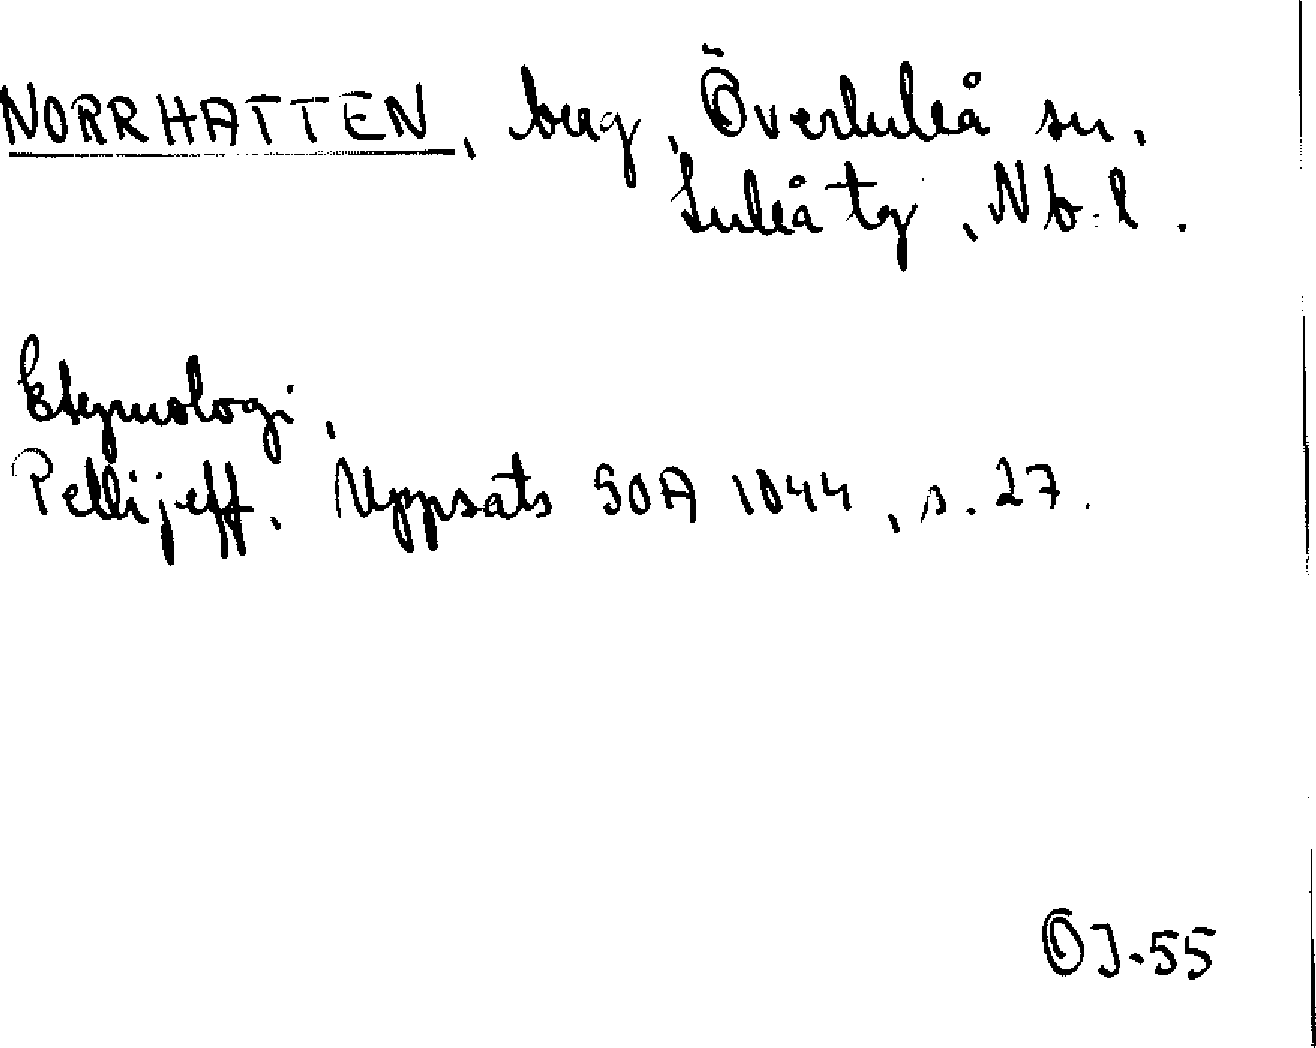 NORRHATTEN, berg, Överluleå sn,
Luleå tg, Nb. l.
Etymologi,
Pellijeff. Uppsats SOA 1044, s. 27.
OJ-55